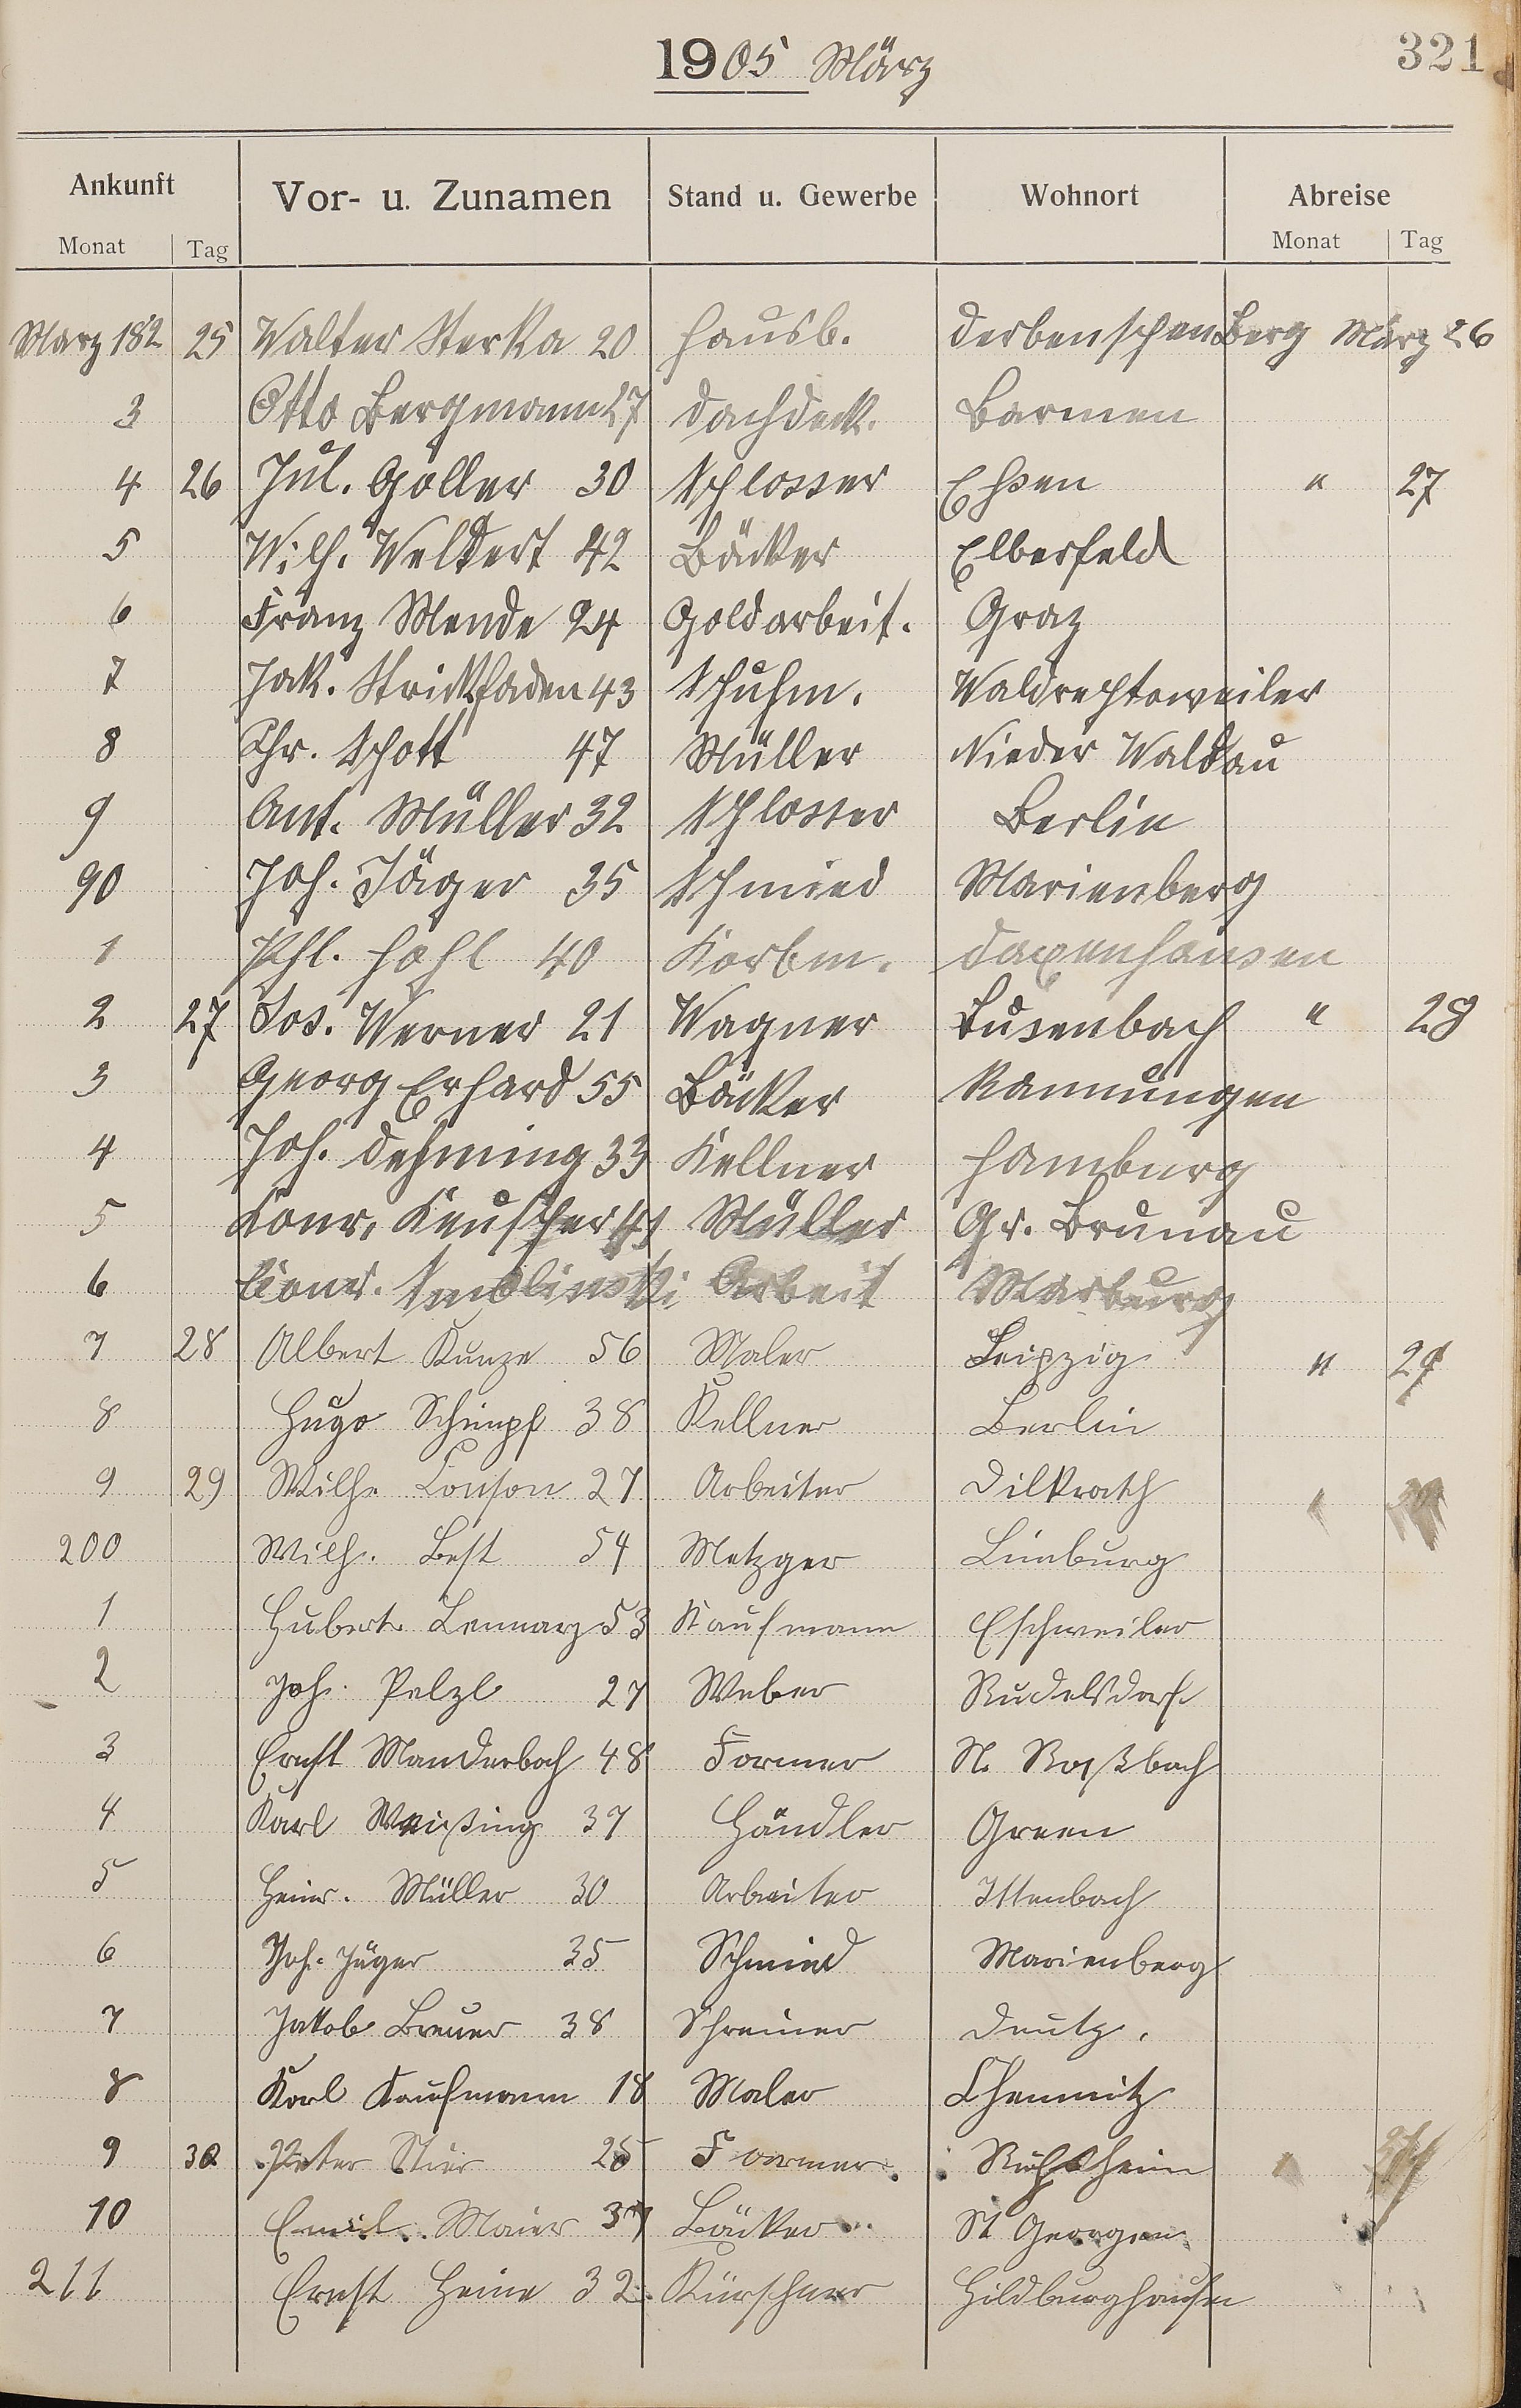 1905 März
321
Ankunft Vor- u. Zunamen Stand u. Gewerbe Wohnort Abreise
Monat Tag Monat Tag
März 182 25 Walter Sterka 20 Hausb. Derbenschenberg März 26
3 Otto Bergmann 27 Dachdeck. Barmen
4 26 Jul. Göller 30 Schlosser Essen " 27
5 Wilh. Weldert 42 Bäcker Elberfeld
6 Franz Mende 24 Goldarbeit. Graz
7 Jak. Strickfaden 43 Schuhm. Waldrechtsweiler
8 Chr. Schott 47 Müller Nieder Waldau
9 Ant. Müller 32 Schlosser Berlin
90 Joh. Jäger 35 Schmied Marienberg
1 Phl. Hohl 40 Korbm. Daxenhausen
2 27 Jos. Werner 21 Wagner Busenbach " 28
3 Georg Erhard 55 Bäcker Rannungen
4 Joh. Dehming 33 Kellner Hamburg
5 Konr. Keuscher Müller Gr. Brunau
6 Arbeit Marburg
7 28 Albert Kunze 56 Maler Leipzig " 29
8 Hugo Schimpf 38 Kellner Berlin
9 29 Wilh. Conson 27 Arbeiter Dilkrath "
200 Wilh. Best 54 Metzger Limburg
1 Hubert Lennarz 53 Kaufmann Eschweiler
2 Joh. Pelzl 27 Weber Rudelsdorf
3 Ernst Manderbach 48 Former N. Roßbach
4 Karl Weißing 37 Händler Green
5 Heinr. Müller 30 Arbeiter Ittenbach
6 Joh. Jäger 35 Schmied Marienberg
7 Jakob Breuer 38 Schreiner Deutz.
8 Karl Kaufmann 18 Maler Chemnitz
9 30 Peter Stier 25 Former Ruchsheim
10 Emil Maier 37 Bäcker St Georgen
211 Ernst Heine 32 Kürschner Hildburghausen